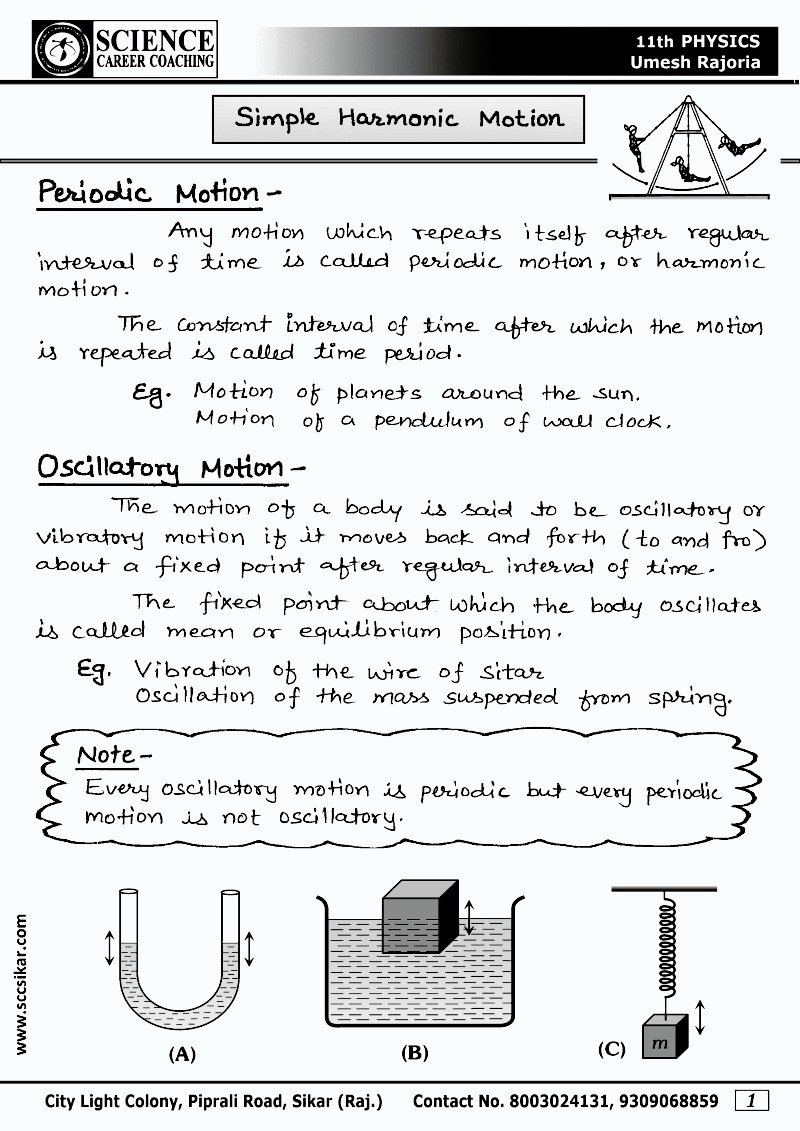 SCIENCE
CAREER COACHING
11th PHYSICS
Umesh Rajoria
Simple Harmonic Motion
Periodic Motion -
Any motion which repeats itself after regular
interval of time is called periodic motion, or harmonic
motion.
The constant interval of time after which the motion
is repeated is called time period.
Eg. Motion of planets around the sun.
Motion of a pendulum of wall clock.
Oscillatory Motion -
The motion of a body is said to be oscillatory or
vibratory motion if it moves back and forth (to and fro)
about a fixed point after regular interval of time.
The fixed point about which the body oscillates
is called mean or equilibrium position.
Eg. Vibration of the wire of sitar
Oscillation of the mass suspended from spring.
Note -
Every oscillatory motion is periodic but every periodic
motion is not oscillatory.
m
(A) (B) (C)
www.sccsikar.com
City Light Colony, Piprali Road, Sikar (Raj.) Contact No. 8003024131, 9309068859 1